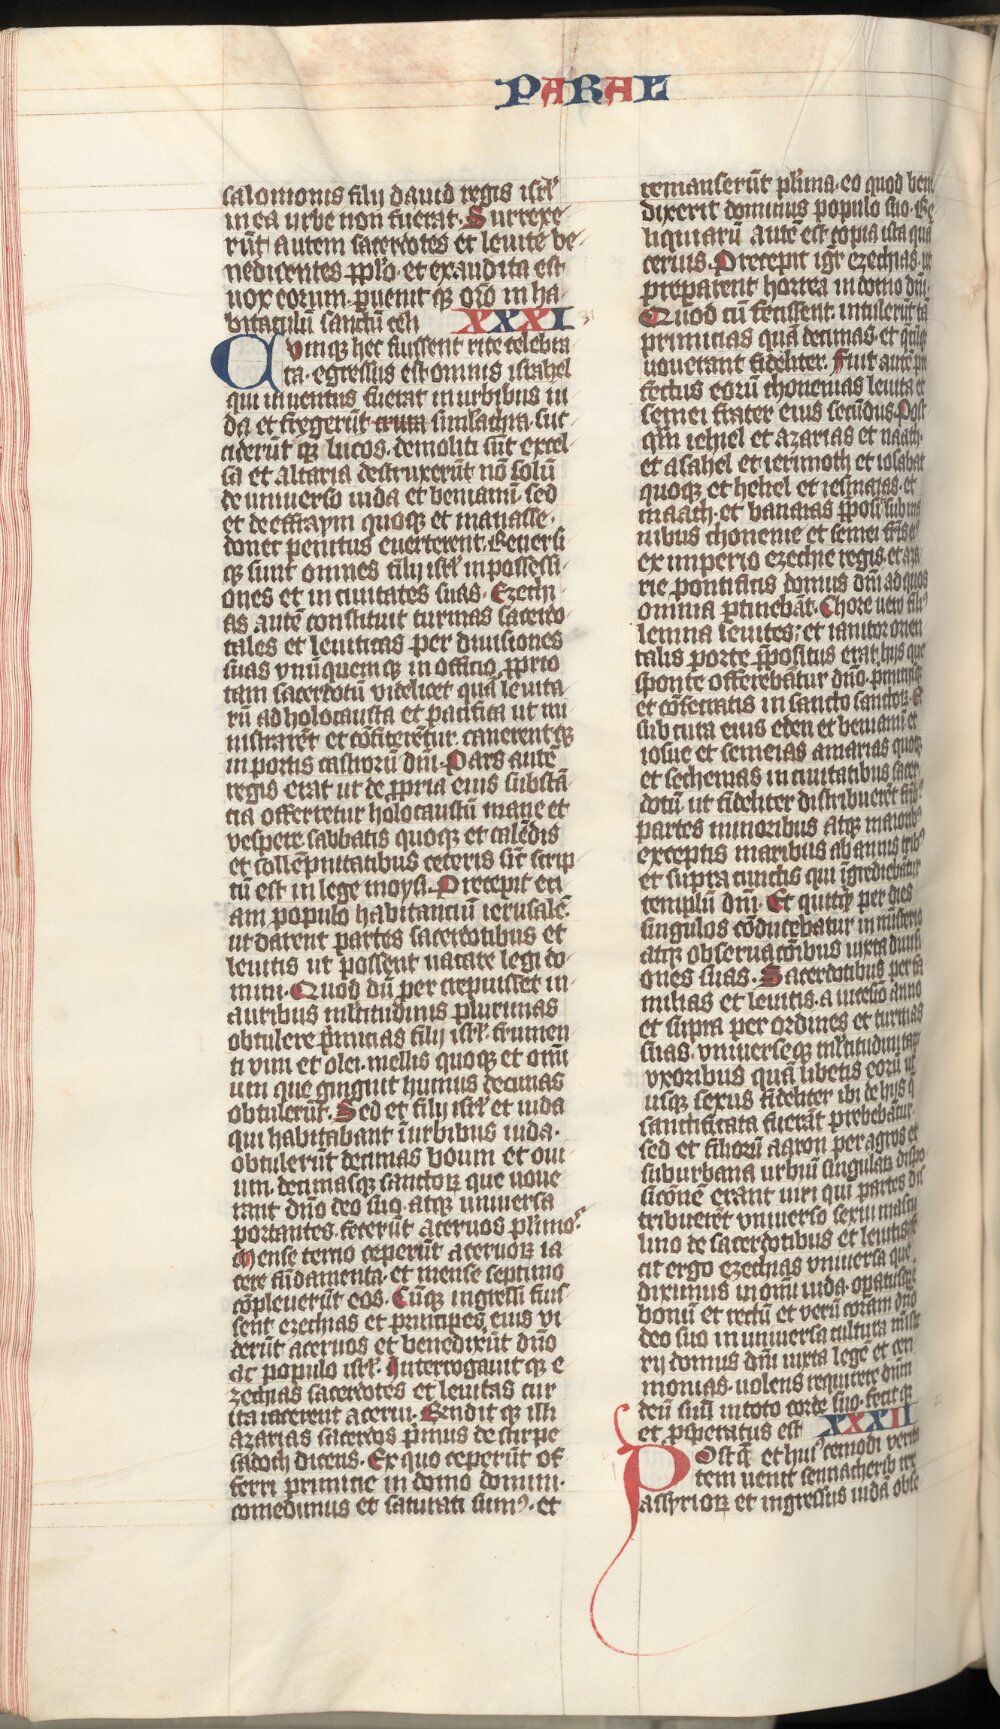 PARAL
salomonis filij dauid regis isrl'
in ea urbe non fuerat. Surrexe
rūt autem sacerdotes et leuite be
nedicentes pp̄lo. et exaudita est
uox eorum. puenit qȝ orō in ha
bitaculū sanctū celi XXXI
Cvmqȝ hec fuissent rite celebra
ta. egressus est omnis israhel
qui inuentus fuerat in urbibus iu
da et fregerūt simlachra. suc
ciderūt qȝ lucos. demoliti sūt excel
sa et altaria destruxerūt nō solū
de uniuerso iuda et beniamī. sed
et de effraym quoqȝ et manasse.
donec penitus euerterent. Reuersi
qȝ sunt omnes filij isrl' in possessi
ones et in ciuitates suas. Ezechi
as autē constituit turmas sacerdo
tales et leuiticas per diuisiones
suas vnūquemqȝ in officio pprio
tam sacerdotū videlicet quā leuita
rū ad holocausta et pacifica ut mi
nistrarēt et cōfiterētur. canerentqȝ
in portis castrorū dn̄i. Pars autē
regis erat ut de ppria eius substā
cia offerretur holocaustū mane et
vespere. sabbatis quoqȝ et calēdis
et sollēpnitatibus ceteris sic̄ scrip
tū est in lege moysi. Precepit eci
am populo habitanciū ierusalē.
ut darent partes sacerdotibus et
leuitis ut possent uacare legi do
mini. Quod dū per crepuisset in
auribus mltitudinis plurimas
obtulere p̄micias filij isrl'. frumen
ti vini et olei. mellis quoqȝ et omī
um que gingnit humus decimas
obtulerūt. Sed et filij isrl' et iuda
qui habitabant ī urbibus iuda.
obtulerūt decimas boum et oui
um. decimasqȝ sanctorꝝ que uoue
rant dn̄o deo suo. atqȝ uniuersa
portantes. fecerūt aceruos plimos.
Mense tercio ceperūt aceruorꝝ ia
cere fūdamenta. et mense septimo
cōpleuerūt eos. Cūqȝ ingressi fuis
sent ezechias et principes eius vi
derūt aceruos et benedixūt dn̄o
ac populo isrl'. Interrogauit qȝ e
zechias sacerdotes et leuitas cur
ita iacerent acerui. Rn̄dit qȝ illi
azarias sacerdos p̄mus de stirpe
sadoch dicens. Ex quo ceperūt of
ferri primicie in domo domini.
comedimus et saturati sumꝰ. et
remanserūt pl'ima. eo quod ben
dixerit dominus populo suo. Re
liquiarū autē est copia ista quā
cernis. Precepit igr̄ ezechias. ut
preparent horrea in domo dn̄i.
Quod cū fecissent. intulerūt tā
primicias quā decimas. et
uouerant fideliter. Fuit autē pre
fectus eorū chonenias leuita et
semei frater eius secūdus. Post
qm̄ iehiel et azarias et naath.
et asahel et ierimoth et iosabat
quoqȝ et heliel et iesmaias. et
maath. et banaias pposi' sub ma
nibus chonenie et semei
ex imperio ezechie regis. et aza
rie pontificis domus dn̄i ad quos
omnia ptinebāt. Chore uero filiꝰ
iemna leuites; et ianitor orien
talis porte ppositus erat hijs que
sponte offerebātur dn̄o.
et cōsecratis in sancto sanctorꝝ. Et
sub cura eius eden et beniamī et
iosue et semeias amarias quoqȝ
et sechenias in ciuitatibus sacer
dotū ut fideliter distribuerēt
partes minoribus atqȝ maioribꝰ
exceptis maribus ab annis tribꝰ
et supra cunctis qui īgrediebātur
templū dn̄i. Et quicqd per dies
singulos cōducebatur in mīsterio
atqȝ obseruacōibus iuxta diuisi
ones suas. Sacerdotibus per fa
milias et leuitis. a vicesīo anno
et supra per ordines et turmas
suas. vniuerseqȝ mltitudini tam
vxoribus quā liberis eorū ut
usqȝ sexus fideliter cibi de hijs q
sanctificata fuerāt prebebātur.
sed et filiorū aaron per agros et
suburbana urbiū singularꝝ dispo
sicōne erant uiri qui partes dis
tribuerēt vniuerso sexui mascu
lino de sacerdotibus et leuitis. fe
cit ergo ezechias vniuersa que
diximus in omī iuda. opatusqȝ
bonū et rectū et verū coram dn̄o
deo suo in uniuersa cultura mīste
rij domus dn̄i iuxta legē et ceri
monias. uolens requirere dnm̄
deū suū in toto corde suo. fecit qȝ
et psperatus est XXXII
Postq̄ et huiꝰcemodi verita
tem uenit sennacherib rex
assyriorꝝ et ingressus iudā obse